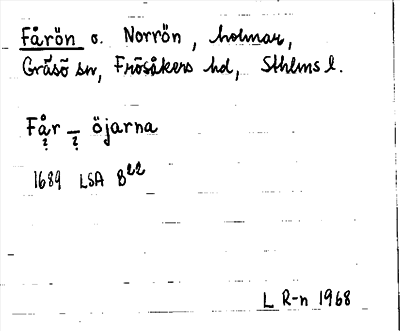 Fårön o. Norrön, holmar,
Gräsö sn, Frösåkers hd, Sthlms l.
Får – öjarna
? ?
1689 LSA B²²
L R-n 1968